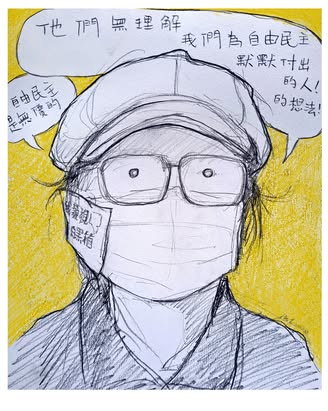 他們無理解
我們為自由民主
默默付出
的人！
的想法！
自由民主
是無價的
黑箱